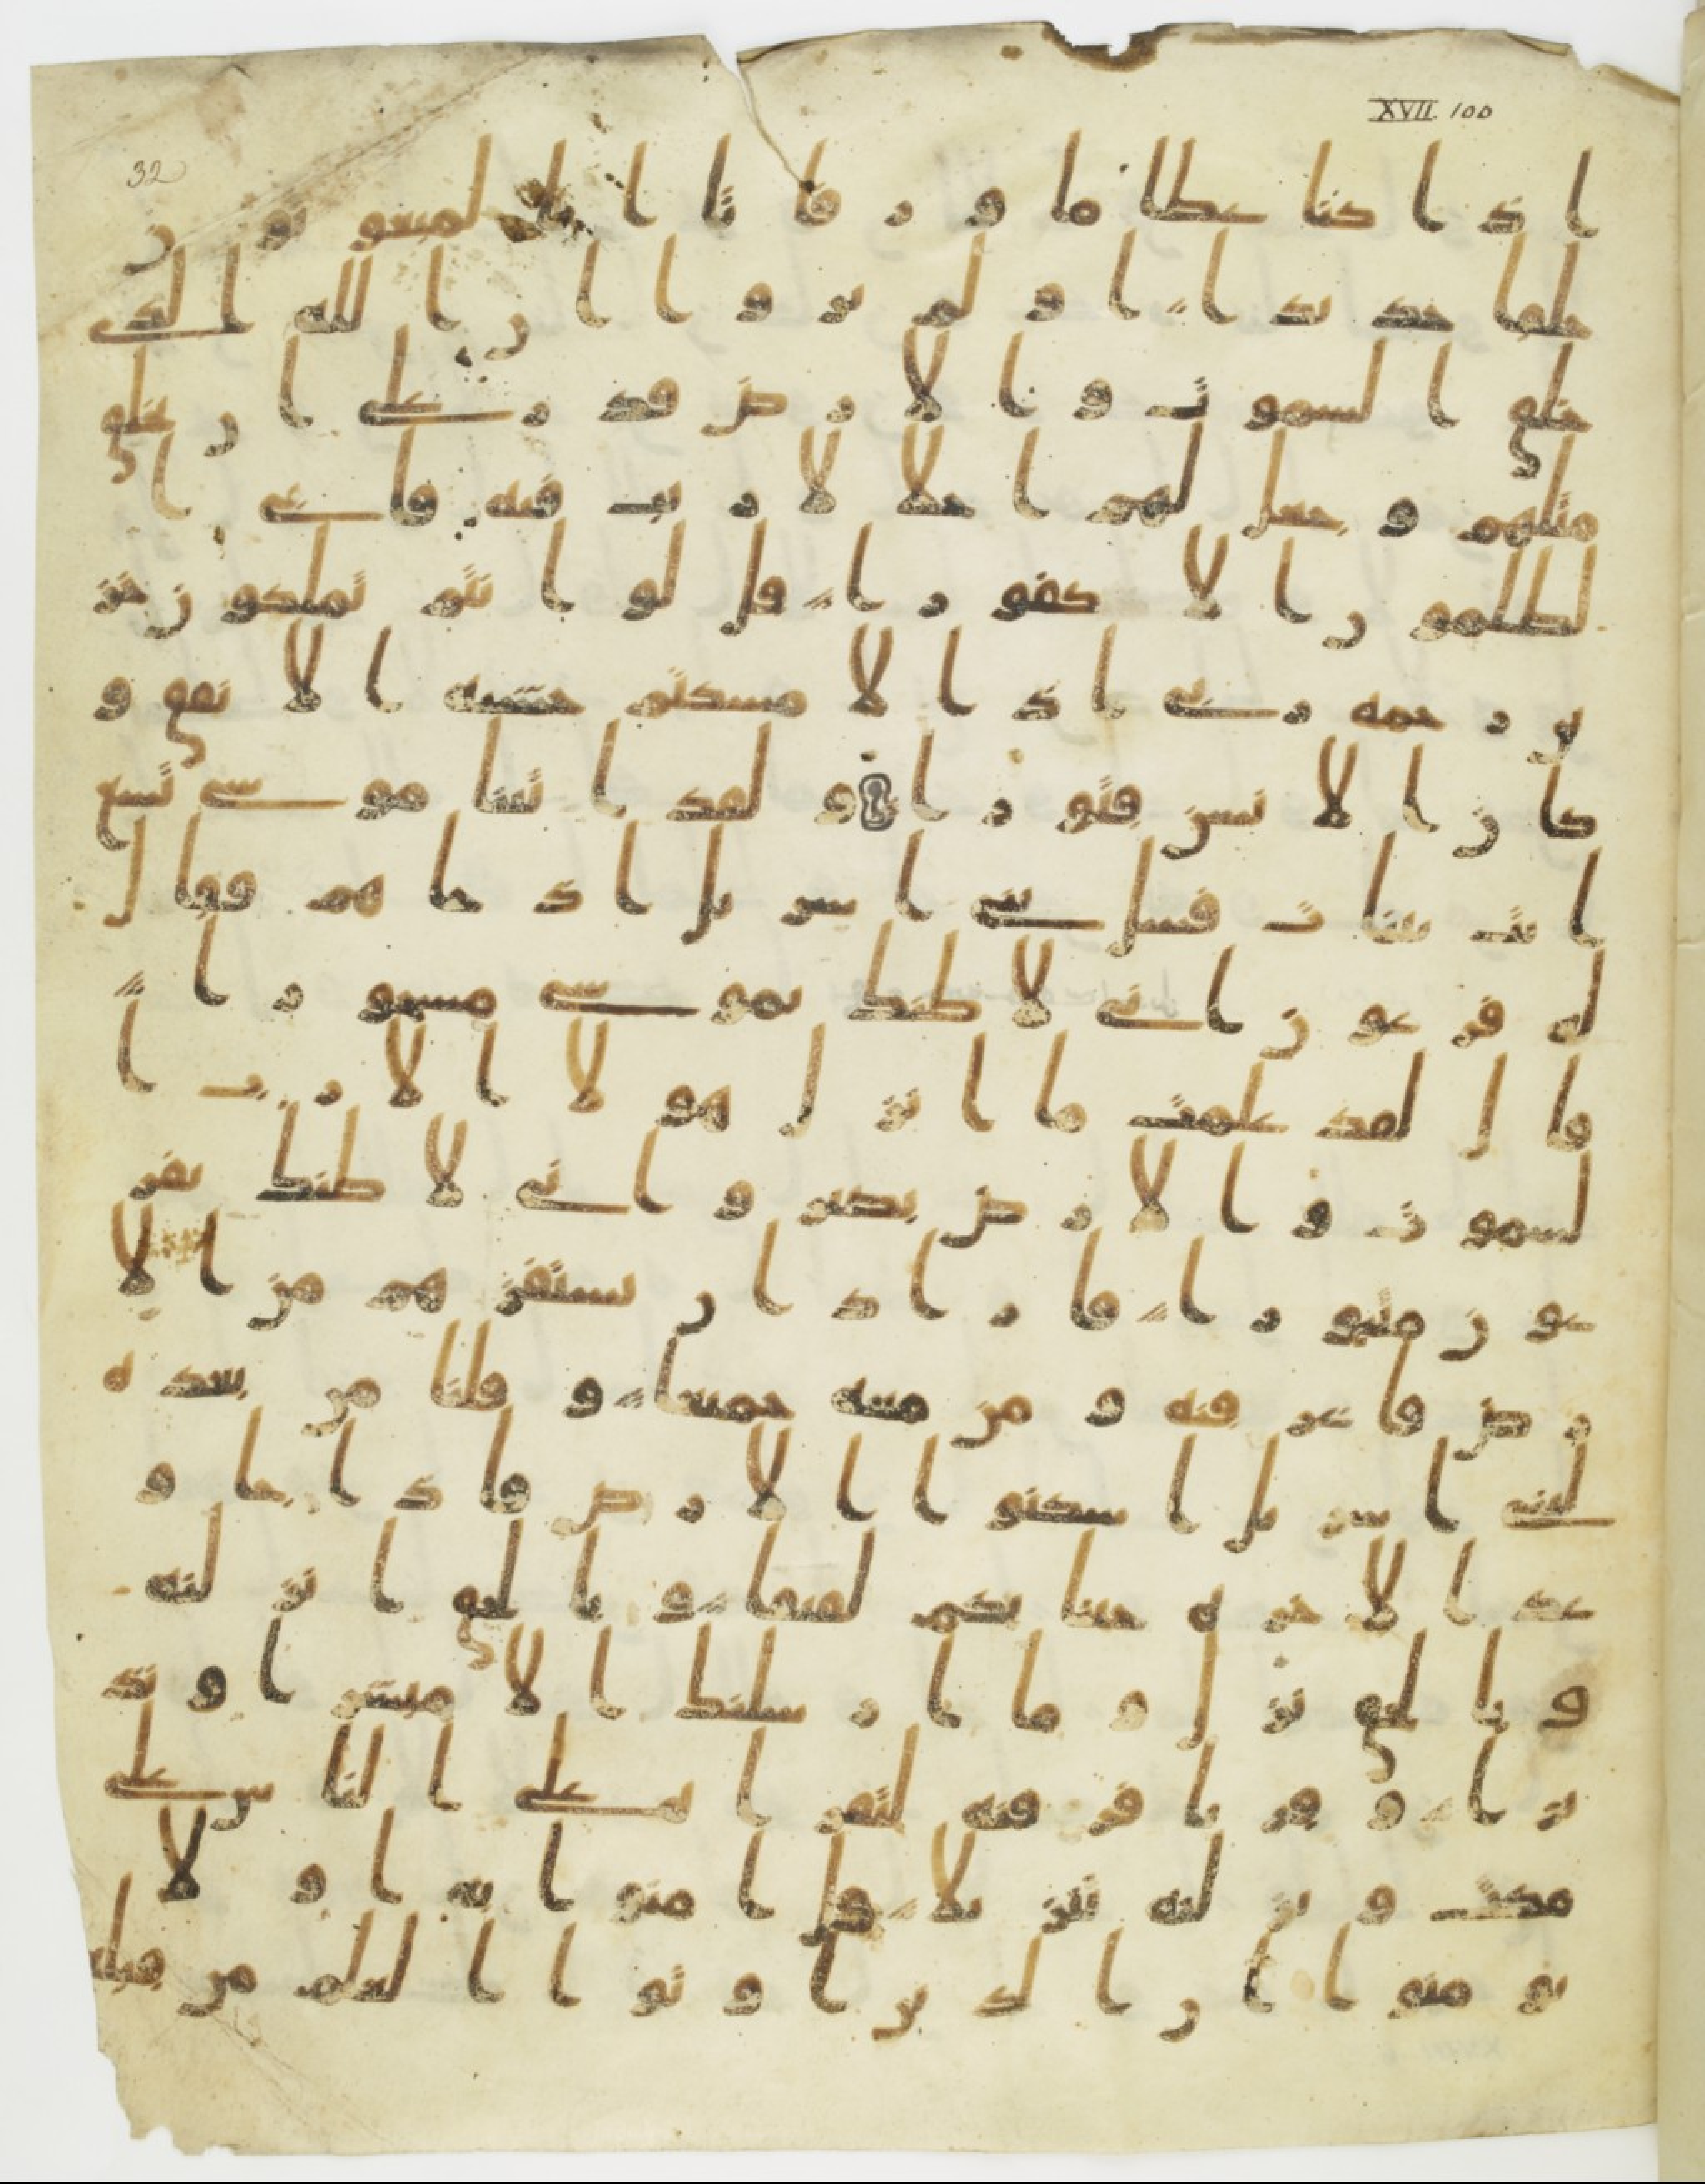 XVII. 100
32
اذا كنا عظاما ورفاتا انا لمبعوثون
خلقا جديدا اولم يروا ان الله الذى
خلق السموت والارض قدر على ان يخلق
مثلهم وجعل لهم اجلا لا ريب فيه فابى ا
لظلمون الا كفورا قل لو انتم تملكون خز
ين رحمه ربى اذا لامسكتم خشيه الانفق و
كان الانسن قتورا ولقد اتينا موسى تسع
ايت بينات فسل بنى اسريل اذ جاهم فقال
له فرعون انى لاظنك يموسى مسحورا
قال لقد علمت ما انزل هولا الا رب ا
لسموت والارض بصير وانى لاظنك يفر
عون مثبورا فاراد ان يستفزهم من الا
رض فاغرقنه ومن معه جميعا وقلنا من بعده
لبنى اسريل اسكنوا الارض فاذا جا و
عد الاخره جينا بكم لفيفا وبالحق انزلنه
وبالحق نزل وما ارسلنك الا مبشرا ونذ
يرا وقرانا فرقنه لتقراه على الناس على
مكث ونزلنه تنزيلا قل امنوا به او لا
تومنوا ان الذين اوتوا العلم من قبله